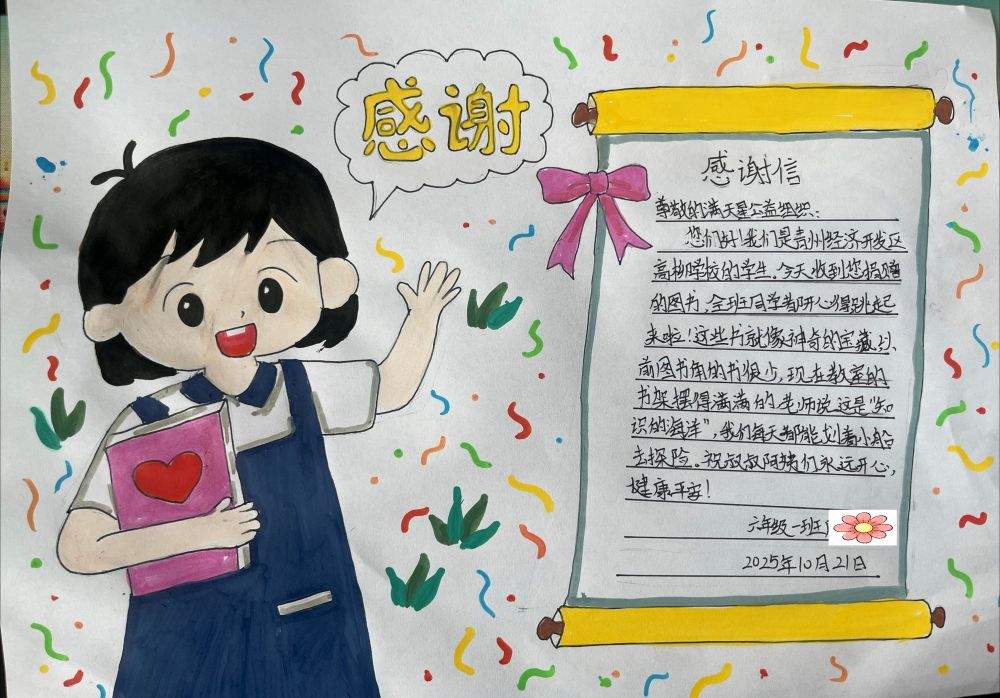 感谢
感谢信
尊敬的满天星公益组织:
您们好!我们是贵州经济开发区
高柳学校的学生,今天收到您捐赠
的图书,全班同学都开心得跳起
来啦!这些书就像神奇的宝藏,以
前图书角的书很少,现在教室的
书架摆得满满的,老师说这是“知
识的海洋”,我们每天都能划着小船
去探险。祝叔叔阿姨们永远开心,
健康平安!
六年级一班
2025年10月21日